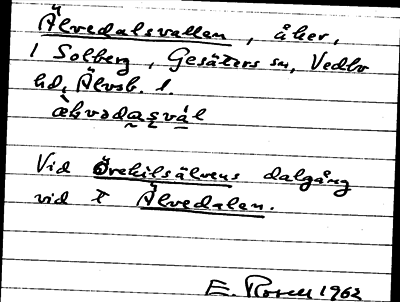 Älvedalsvallen, åker,
1 Solberg, Gesäters sn, Vedbo
hd, Älvsb. l.
æ̀ḷvədạṣvá̱l
Vid Örekilsälvens dalgång
vid ⵣ Älvedalen.
E. Rosell 1962